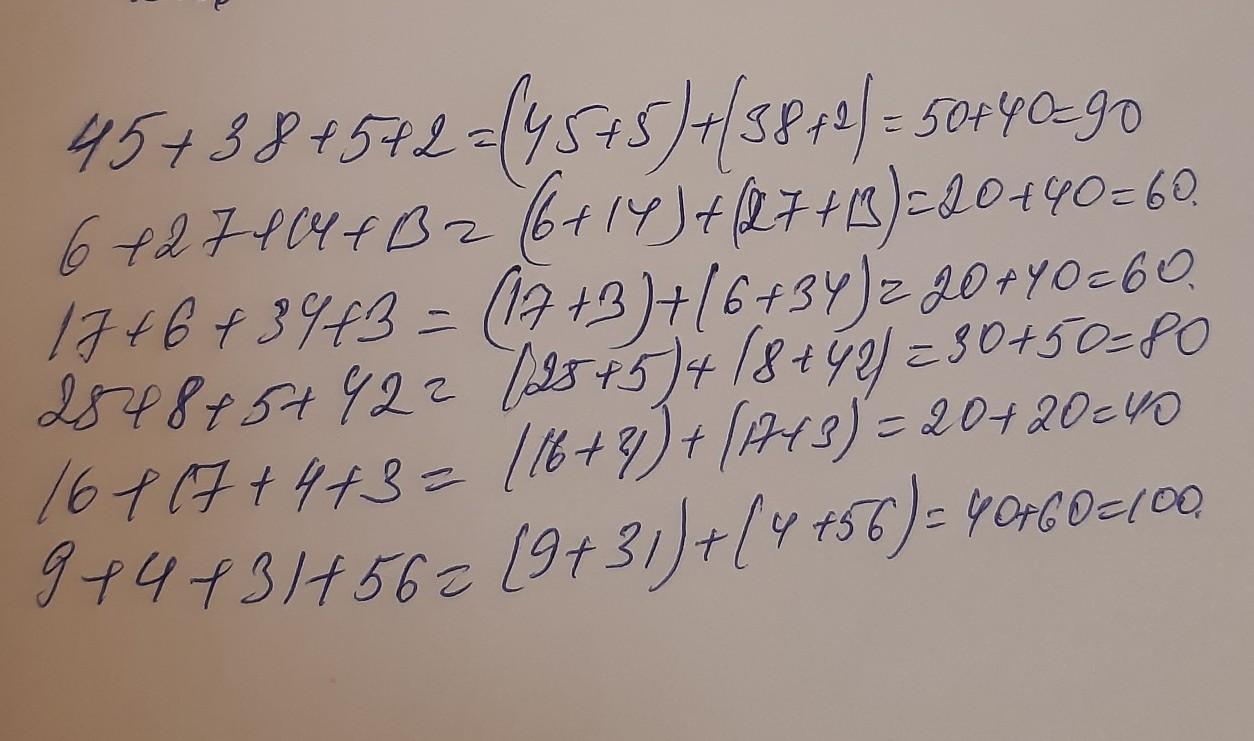 45+38+5+2=(45+5)+(38+2)=50+40=90
6+27+14+13=(6+14)+(27+13)=20+40=60.
17+6+34+3=(17+3)+(6+34)=20+40=60.
25+8+5+42=(25+5)+(8+42)=30+50=80
16+17+4+3=(16+4)+(17+3)=20+20=40
9+4+31+56=(9+31)+(4+56)=40+60=100.